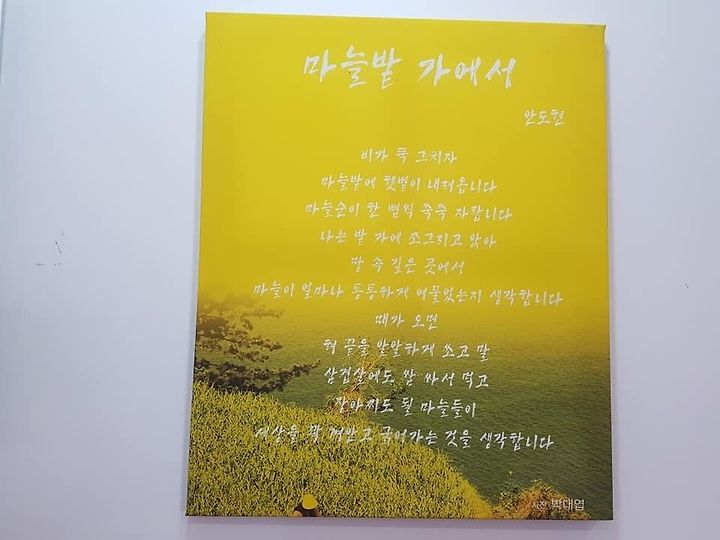 마늘밭 가에서
안도현
비가 뚝 그치자
마늘밭에 햇볕이 내려옵니다
마늘순이 한 뼘씩 쑥쑥 자랍니다
나는 밭 가에 쪼그리고 앉아
땅 속 깊은 곳에서
마늘이 얼마나 통통하게 여물었는지 생각합니다
때가 오면
혀 끝을 알알하게 쏘고 말
삼겹살에도 쌈 싸서 먹고
장아찌도 될 마늘들이
세상을 꽉 껴안고 굵어가는 것을 생각합니다
사진 박대엽